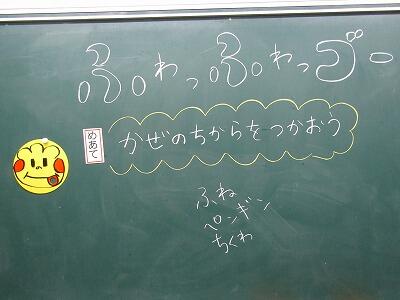 ふわっふわっゴー
めあて
かぜのちからをつかおう
ふね
ペンギン
ちくわ